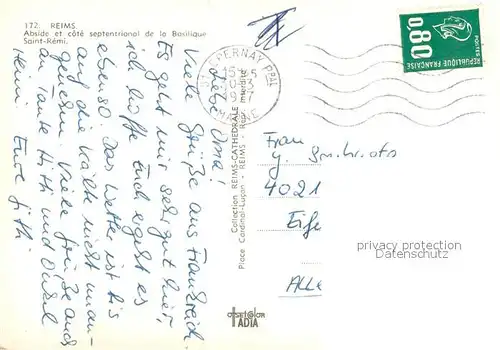 172. REIMS.
Abside et côté septentrional de la Basilique
Saint-Rémi.
Liebe Oma!
Viele Grüße aus Frankreich.
Es geht mir sehr gut hier,
ich hoffe Euch ergeht es
ebenso. Das Wetter ist bis
auf die Kälte nicht unan-
genehm. Viele Grüße auch
an Tante Hitti und Onkel
Heini Eure Gitti
Collection REIMS-CATHÉDRALE
Place Cardinal-Luçon - REIMS - Repr. interdite
51 EPERNAY PPAL
MARNE
0,80
REPUBLIQUE FRANÇAISE
POSTES
Frau
4021
privacy protection
Datenschutz